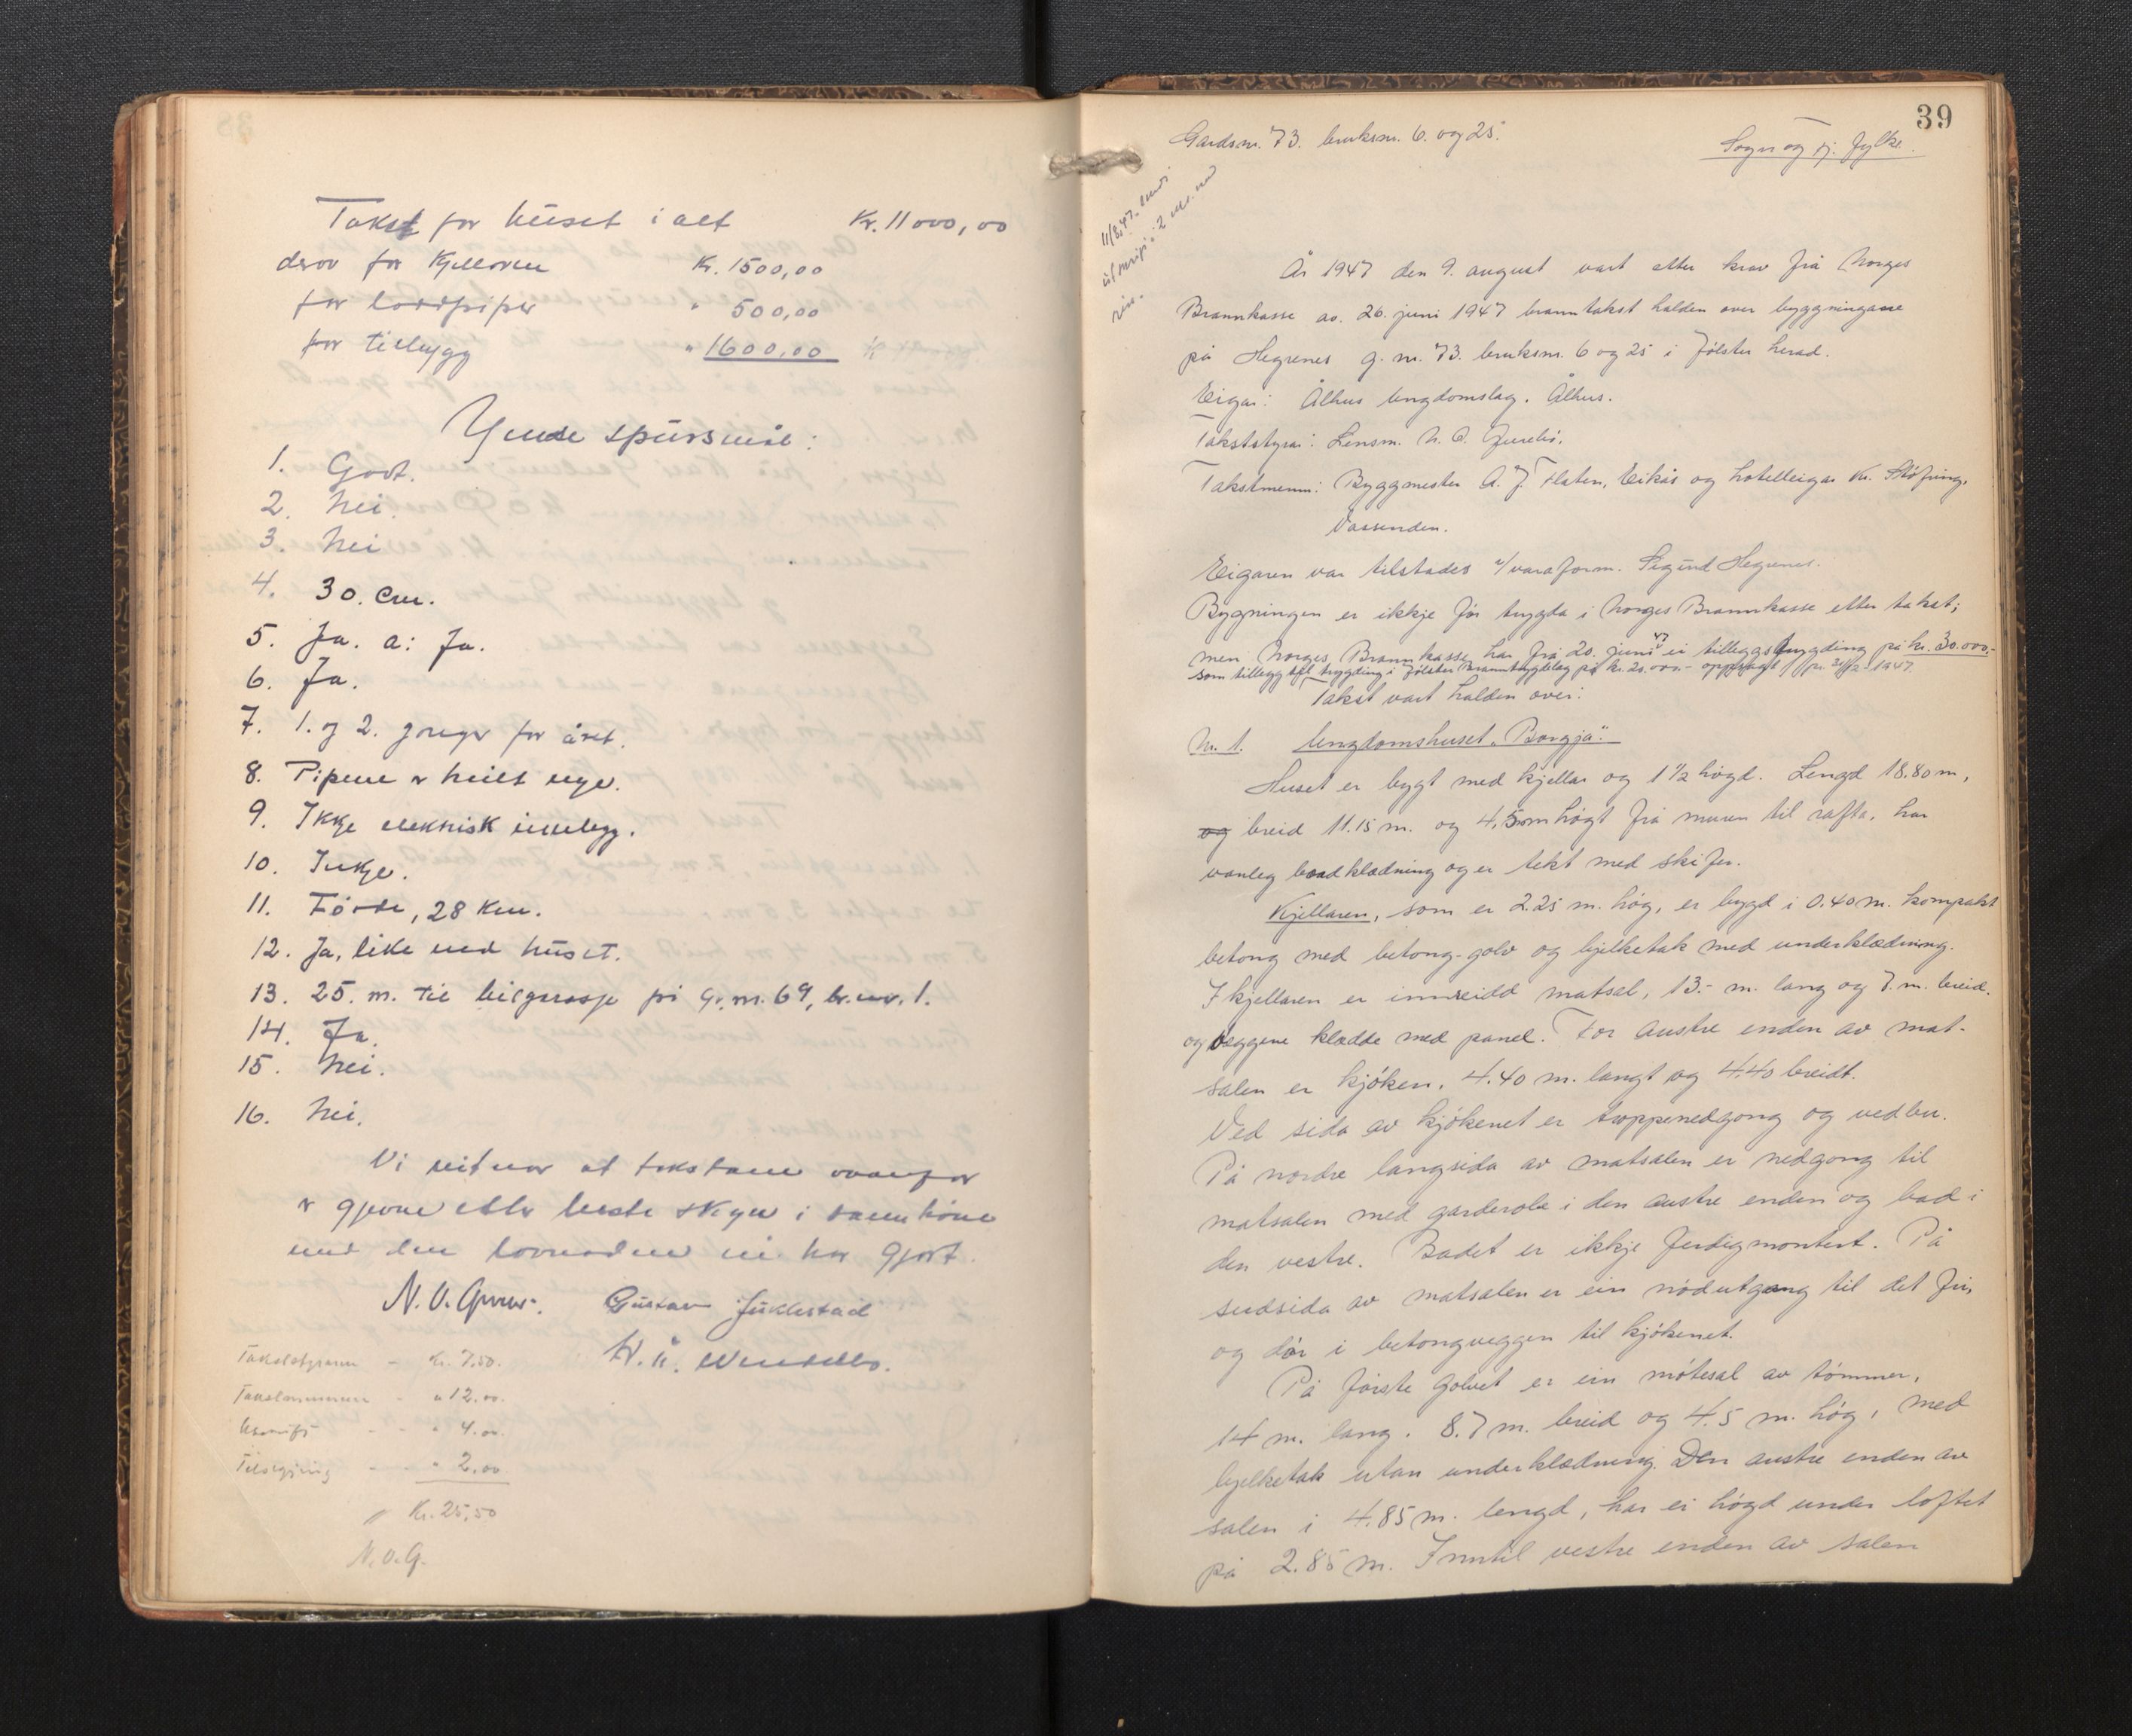 Takst for huset i alt Kr. 11000,00
derav for kjelleren Kr. 1500,00
for loddpiper " 500,00
for tilbygg " 1600,00
Ymse spursmål:
1. Godt.
2. Nei.
3. Nei
4. 30. cm.
5. Ja. a: Ja.
6. Ja.
7. 1. og 2. gonger for året.
8. Pipene er heilt nye.
9. Ikkje elektrisk innlegg.
10. Inkje.
11. Förde, 28 km.
12. Ja, like ved huset.
13. 25. m. til bilgarasje på G.nr. 69, br.nr. 1.
14. Ja.
15. Nei.
16. Nei.
Vi vitnar at takstane ovanfor
er gjevne etter beste skyn i samhöve
med den lovnaden vi har gjort.
N. O. Gjuvsl. Gustav Juklestad
Takststyraren - kr. 7.50.
Takstmennene - " 12.00.
Utskrift - - " 4.00.
Tilsegjing - - " 2.00
Kr. 25,50
N.O.G.
39
Gardsnr. 73. bruksnr. 6. og 25.
Sogn og Fj. fylke.
11/8.47. sendt
utskript i 2 eks. med
År 1947 den 9. august vart etter krav frå Norges
Brannkasse av. 26. juni 1947 branntakst halden over byggningane
på Hegrenes g. nr. 73. bruksnr. 6 og 25 i Jølster herad.
Eigar: Ålhus Ungdomslag. Ålhus.
Takststyrar: Lensm. N. O.
Takstmenn: Byggmester A. J. Flaten, Eikås og hotelleigar Kr. Støfring,
Vassenden.
Eigaren var tilstades v/varaform. Sigurd Hegrenes.
Bygningen er ikkje før trygda i Norges Brannkasse etter takst;
men Norges Brannkasse har frå 20. juni 47 ei tilleggstrygding på kr. 30.000,-
som tillegg til trygding i Jølster Branntrygdelag på kr. 20.000.- oppsagt pr. 31/12-1947.
Takst vart halden over:
Nr. 1. Ungdomshuset "Borgja".
Huset er bygt med kjellar og 1 1/2 høgd. Lengd 18.80 m,
og breid 11.15 m. og 4,50m høgt frå muren til rafta, har
vanleg bordklædning og er tekt med skifer.
Kjellaren, som er 2.25 m. høg, er bygd i 0.40 m. kompakt
betong med betong-golv og bjelketak med underklædning.
I kjellaren er innreidd matsal, 13.- m. lang og 7. m. breid.
og veggene klædde med panel. For austre enden av mat-
salen er kjøken, 4.40 m. langt og 4.40 breidt.
Ved sida av kjøkenet er trappenedgong og vedbu.
På nordre langsida av matsalen er nedgong til
matsalen med garderobe i den austre enden og bad i
den vestre. Badet er ikkje ferdigmontert. På
sudsida av matsalen er ein nødutgang til det fri,
og dør i betongveggen til kjøkenet.
På første golvet er ein møtesal av tømmer,
14 m. lang. 8.7 m. breid og 4.5 m. høg, med
bjelketak utan underklædning. Den austre enden av
salen i 4.85 m. lengd, har ei høgd under loftet
på 2.85 m. Inntil vestre enden av salen